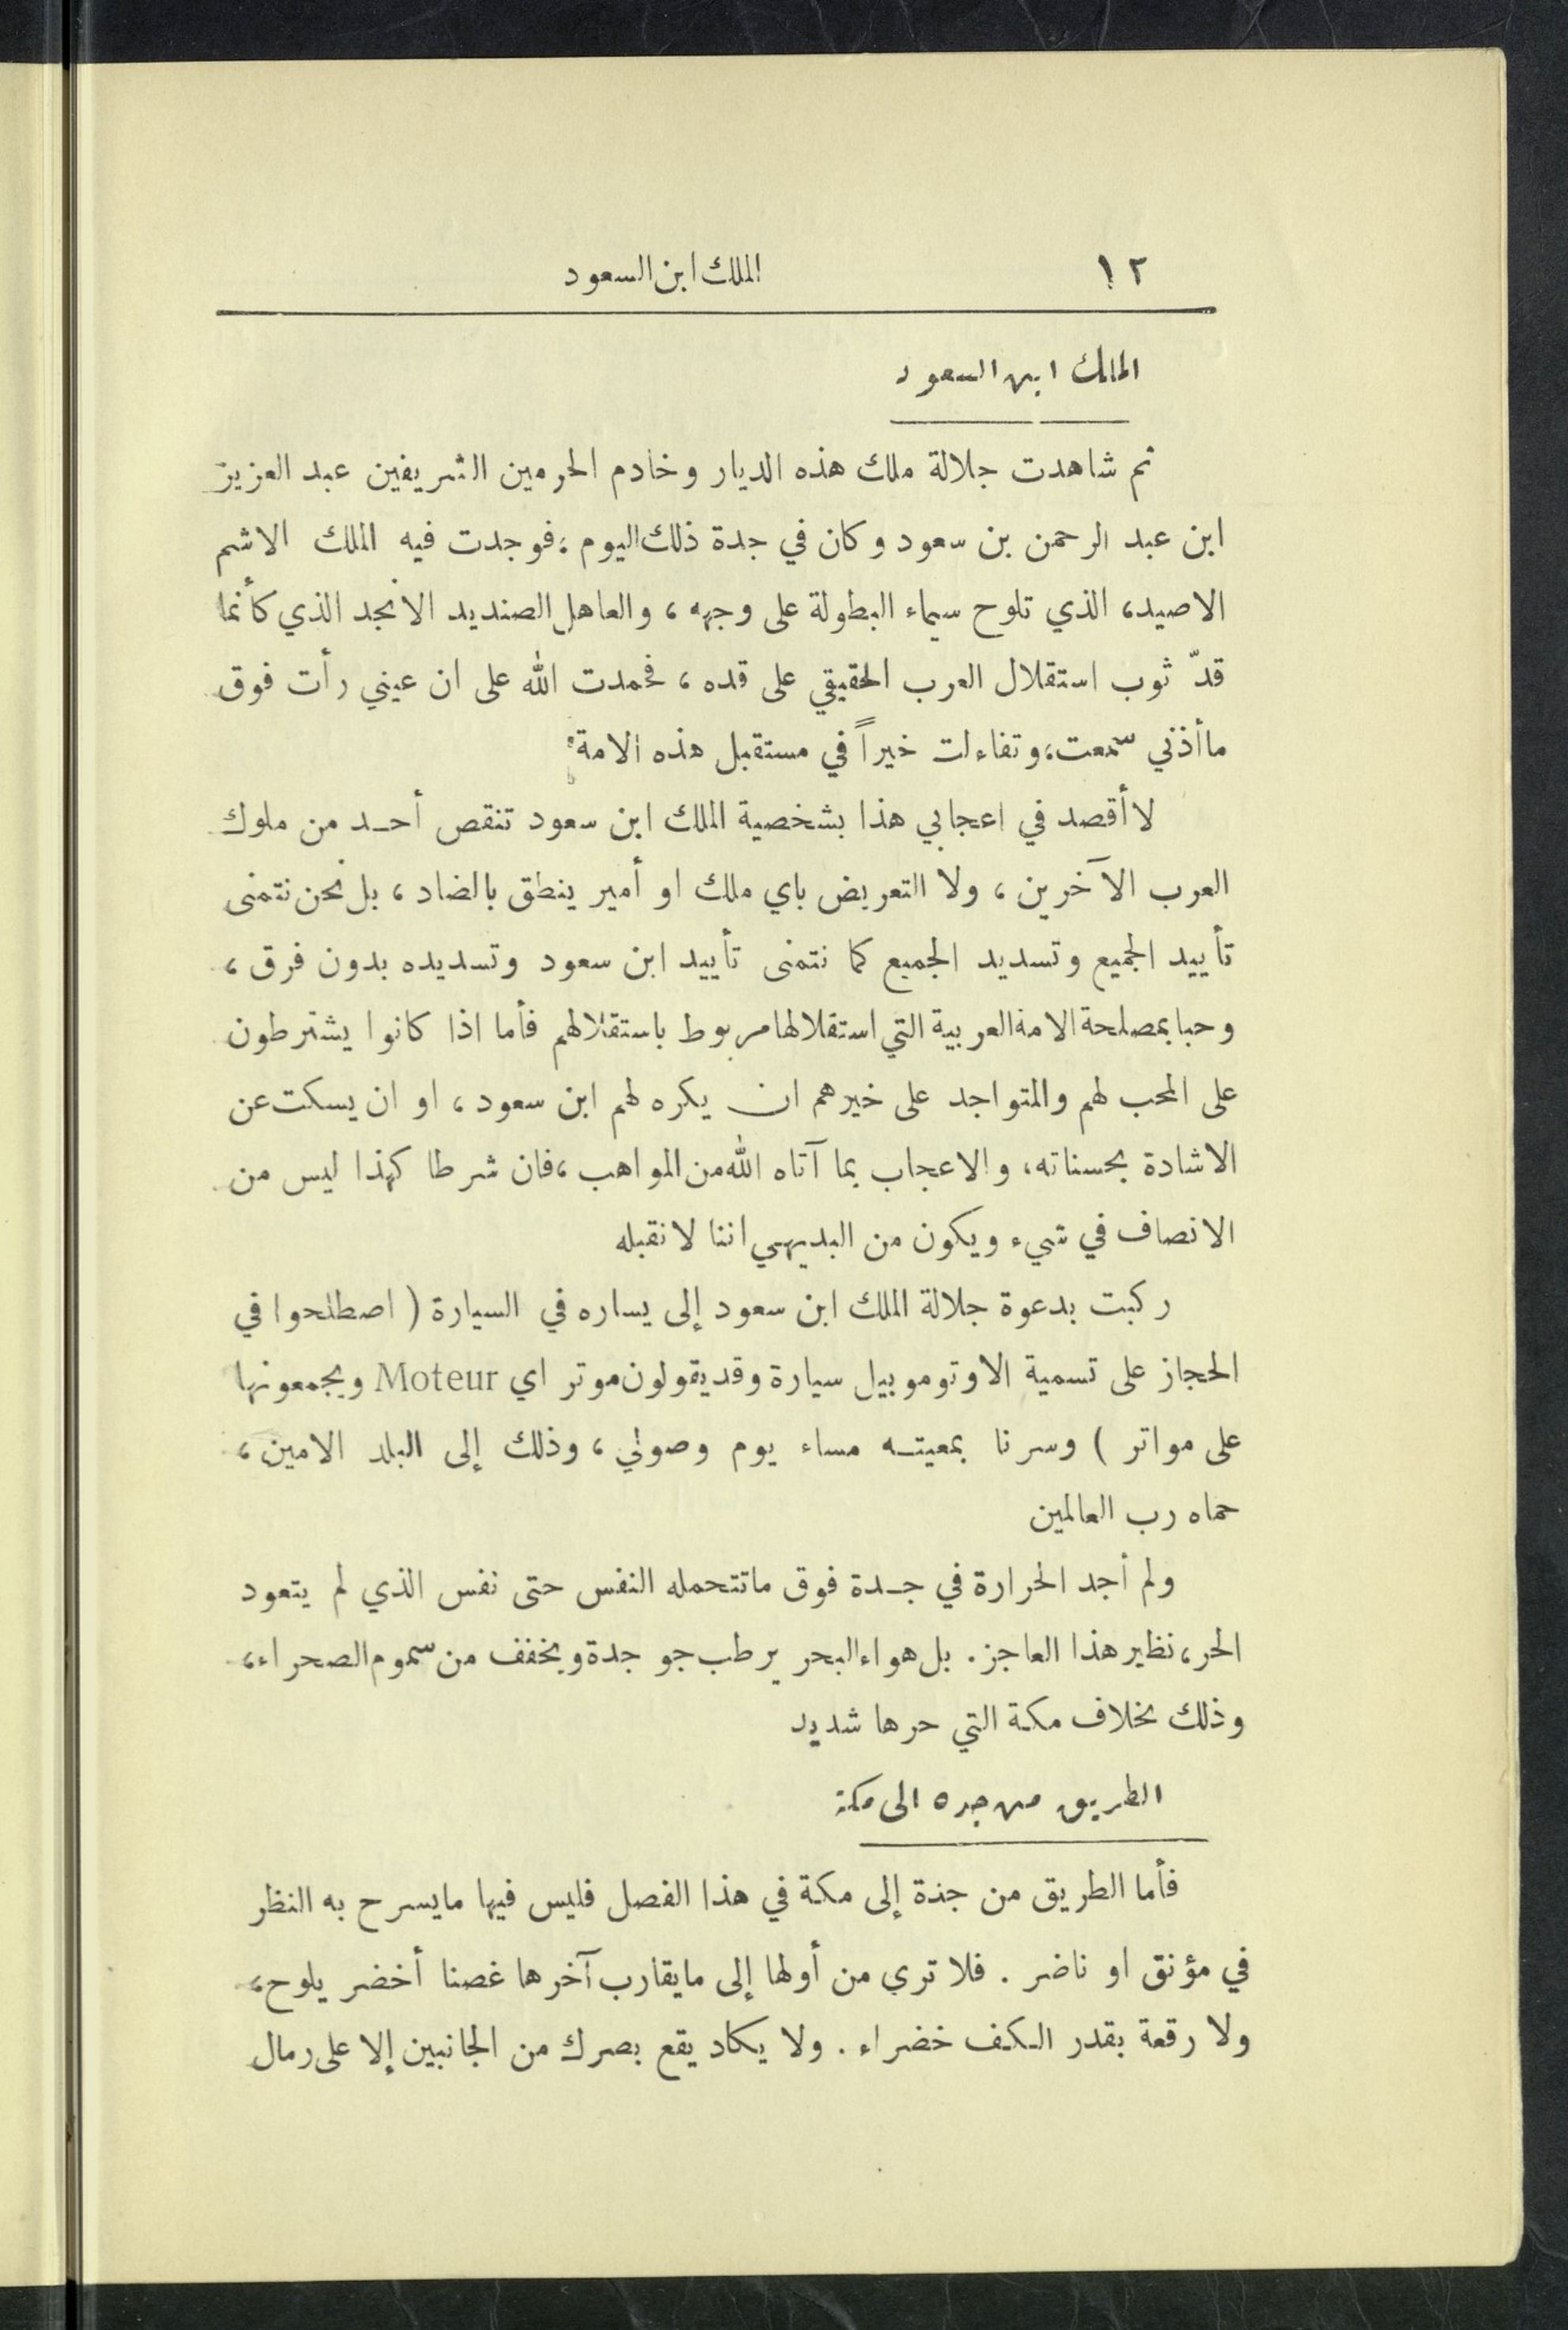 ١٢ الملك ابن السعود
الملك ابن السعود
ثم شاهدت جلالة ملك هذه الديار وخادم الحرمين الشريفين عبد العزيز
ابن عبد الرحمن بن سعود وكان في جدة ذلك اليوم ، فوجدت فيه الملك الاشم
الاصيد ، الذي تلوح سيماء البطولة على وجهه ، والعاهل الصنديد الانجد الذي كأنما
قدّ ثوب استقلال العرب الحقيقي على قده ، فحمدت الله على ان عيني رأت فوق
ما أذني سمعت ، وتفاءلت خيراً في مستقبل هذه الامة
لا أقصد في اعجابي هذا بشخصية الملك ابن سعود تنقص أحد من ملوك
العرب الآخرين ، ولا التعريض باي ملك او أمير ينطق بالضاد ، بل نحن نتمنى
تأييد الجميع وتسديد الجميع كما نتمنى تأييد ابن سعود وتسديده بدون فرق ،
وحبا بمصلحة الامة العربية التي استقلالها مربوط باستقلالهم فأما اذا كانوا يشترطون
على المحب لهم والمتواجد على خيرهم ان يكره لهم ابن سعود ، او ان يسكت عن
الاشادة بحسناته ، والاعجاب بما آتاه الله من المواهب ، فان شرطا كهذا ليس من
الانصاف في شيء ويكون من البديهي اننا لا نقبله
ركبت بدعوة جلالة الملك ابن سعود إلى يساره في السيارة ( اصطلحوا في
الحجاز على تسمية الاوتوموبيل سيارة وقد يقولون موتر اي Moteur ويجمعونها
على مواتر ) وسرنا بمعيته مساء يوم وصولي ، وذلك إلى البلد الامين ،
حماه رب العالمين
ولم أجد الحرارة في جدة فوق ما تتحمله النفس حتى نفس الذي لم يتعود
الحر ، نظير هذا العاجز . بل هواء البحر يرطب جو جدة ويخفف من سموم الصحراء ،
وذلك بخلاف مكة التي حرها شديد
الطريق من جدة الى مكة
فأما الطريق من جدة إلى مكة في هذا الفصل فليس فيها ما يسرح به النظر
في مؤنق او ناضر . فلا ترى من أولها إلى ما يقارب آخرها غصنا أخضر يلوح ،
ولا رقعة بقدر الكف خضراء . ولا يكاد يقع بصرك من الجانبين إلا على رمال